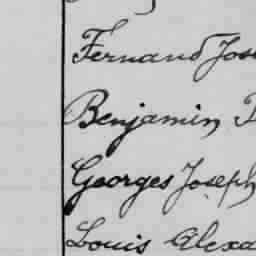 Fernand Jose
Benjamin
Georges Joseph
Louis Alexa